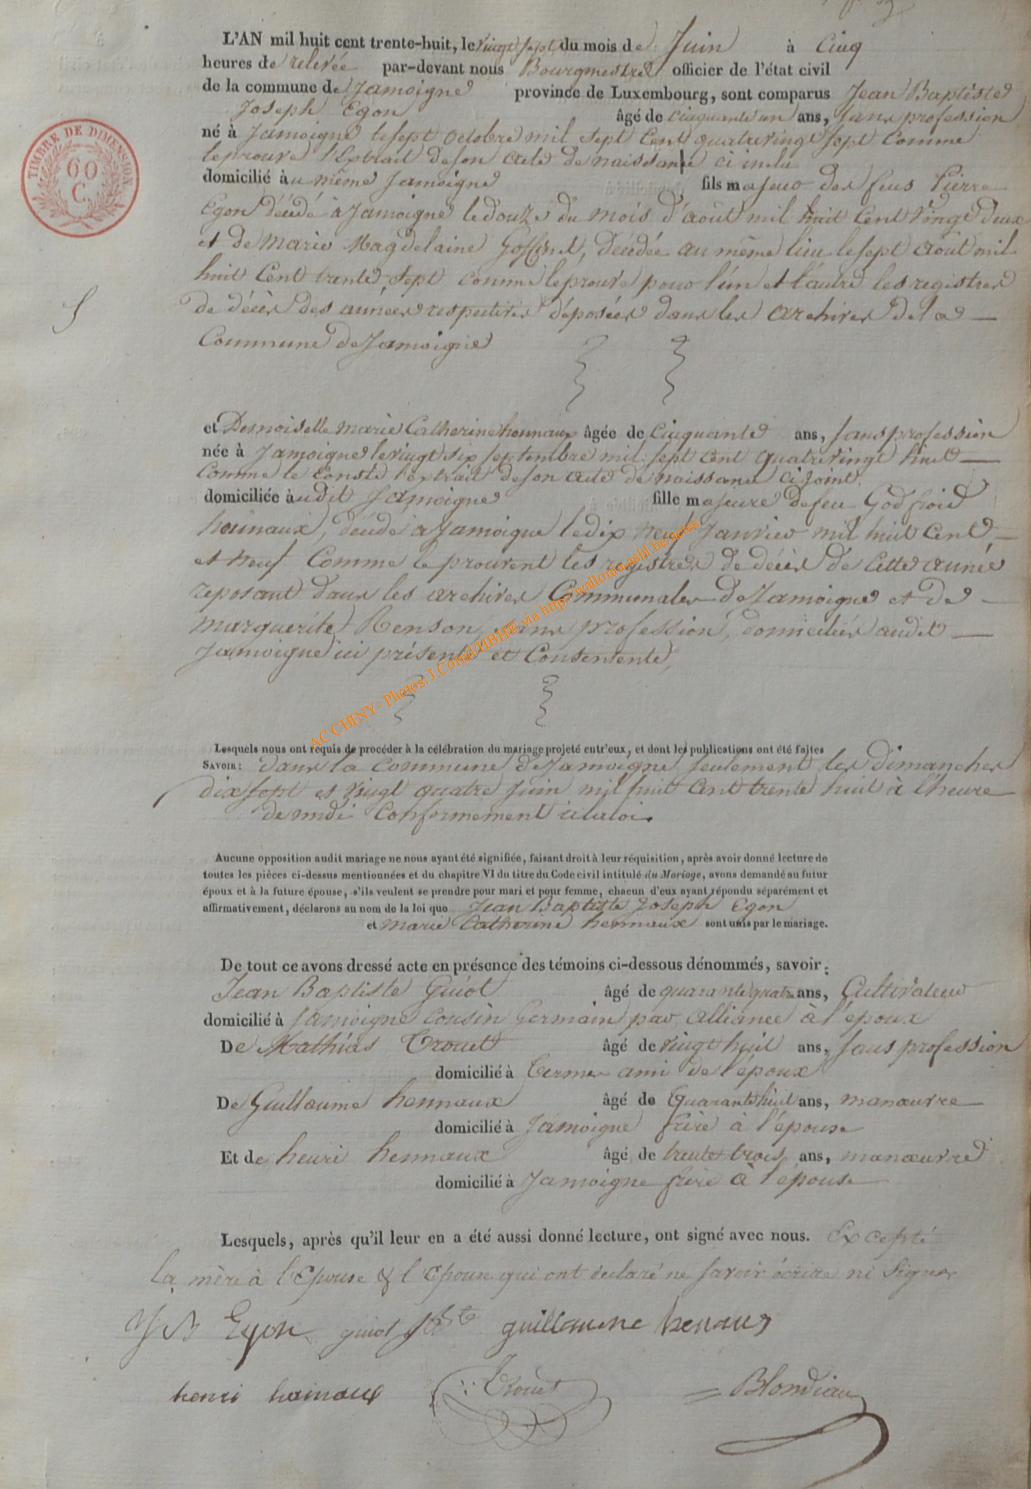 L'AN mil huit cent trente-huit, le vingt sept du mois de Juin à Cinq
heures de relevée par-devant nous Bourgmestre officier de l'état civil
de la commune de Jamoigne province de Luxembourg, sont comparus Jean Baptiste
Joseph Egon âgé de cinquante un ans, sans profession
né à Jamoigne le sept octobre mil sept cent quatrevingt sept comme
le prouve l'Extrait de son acte de naissance ci
domicilié à u même Jamoigne fils majeur des feus Pierre
Egon décédé à Jamoigne le douze du mois d'août mil huit Cent vingt deux
et de Marie Magdelaine Gossinet, décédée au même lieu le sept août mil
huit Cent trente sept comme le prouve pour l'un et l'autre les registres
de décès des années respectives déposées dans les archives de la
Commune de Jamoigne
et Demoiselle Marie Catherine hennaux âgée de Cinquante ans, sans profession
née à Jamoigne le vingt six septembre mil sept cent quatrevingt huit
Comme le conste l'extrait de son acte de naissance ci joint
domiciliée à udit Jamoigne fille majeure de feu Godfroid
hennaux, décédé à Jamoigne le dix neuf Janvier mil huit Cent
et neuf Comme le prouvent les registres de décès de Cette année
reposant dans les archives Communales de Jamoigne et de
Marguerite Henson, sans profession, domiciliée audit
Jamoigne ici présente et Consentente,
Lesquels nous ont requis de procéder à la célébration du mariage projeté entr'eux, et dont les publications ont été faites
SAVOIR: dans la commune de Jamoigne seulement les dimanches
dix sept et vingt quatre juin mil huit Cent trente huit à l'heure
de midi Conformement à la loi.
Aucune opposition audit mariage ne nous ayant été signifiée, faisant droit à leur réquisition, après avoir donné lecture de
toutes les pièces ci-dessus mentionnées et du chapitre VI du titre du Code civil intitulé du Mariage, avons demandé au futur
époux et à la future épouse, s'ils veulent se prendre pour mari et pour femme, chacun d'eux ayant répondu séparément et
affirmativement, déclarons au nom de la loi que Jean Baptiste Joseph Egon
et Marie Catherine hennaux sont unis par le mariage.
De tout ce avons dressé acte en présence des témoins ci-dessous dénommés, savoir:
Jean Baptiste Guiot âgé de quarante quatre ans, Cultivateur
domicilié à Jamoigne Cousin Germain par alliance à l'époux
De Mathias Trouet âgé de vingt huit ans, sans profession
domicilié à Termes ami de l'époux
De Guillaume hennaux âgé de Quarante huit ans, manœuvre
domicilié à Jamoigne frère à l'épouse
Et de henri hennaux âgé de trente trois ans, manœuvre
domicilié à Jamoigne frère à l'épouse
Lesquels, après qu'il leur en a été aussi donné lecture, ont signé avec nous. Excepté
La mère à l'Epouse & l'Epouse qui ont declaré ne savoir écrire ni Signer
J B Egon guiot guillaume henaux
henri hainaux Trouet Blondiau
TIMBRE DE DIMENSION
60
C.
AC CHINY- Photos J.Collet